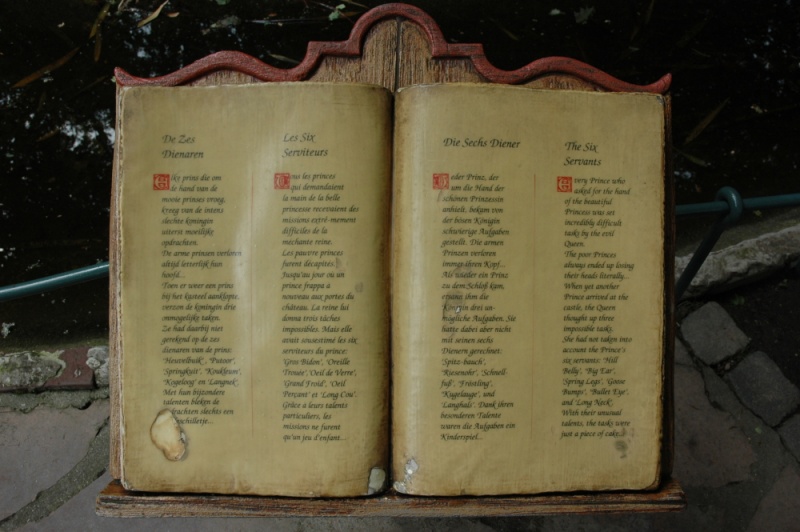 De Zes
Dienaren
Elke prins die om
de hand van de
mooie prinses vroeg,
kreeg van de intens
slechte koningin
uiterst moeilijke
opdrachten.
De arme prinsen verloren
altijd letterlijk hun
hoofd...
Toen er weer een prins
bij het kasteel aanklopte,
verzon de koningin drie
onmogelijke taken.
Ze had daarbij niet
gerekend op de zes
dienaren van de prins:
'Heuvelbuik', 'Putoor',
'Springkuit', 'Koukleum',
'Kogeloog' en 'Langnek'.
Met hun bijzondere
talenten bleken de
opdrachten slechts een
schilletje...
Les Six
Serviteurs
Tous les princes
qui demandaient
la main de la belle
princesse recevaient des
missions extrê-mement
difficiles de la
méchante reine.
Les pauvre princes
furent décapités!
Jusqu'au jour où un
prince frappa à
nouveau aux portes du
château. La reine lui
donna trois tâches
impossibles. Mais elle
avait sousestimé les six
serviteurs du prince:
'Gros Bidon', 'Oreille
Trouer', 'Oeil de Verre',
'Grand Froid', 'Oeil
Perçant' et 'Long Cou'.
Grâce a leurs talents
particuliers, les
missions ne furent
qu'un jeu d'enfant...
Die Sechs Diener
Jeder Prinz, der
um die Hand der
schönen Prinzessin
anhielt, bekam von
der bösen Königin
schwierige Aufgaben
gestellt. Die armen
Prinzen verloren
immer ihren Kopf...
Als wieder ein Prinz
zu dem Schloß kam,
ersann ihm die
Königin drei un-
mögliche Aufgaben. Sie
hatte dabei aber nicht
mit seinen sechs
Dienern gerechnet:
'Spitz-bauch',
'Riesenohr', 'Schnell-
fuß', 'Fröstling',
'Kugelauge', und
'Langhals'. Dank ihren
besonderen Talente
waren die Aufgaben ein
Kinderspiel...
The Six
Servants
Every Prince who
asked for the hand
of the beautiful
Princess was set
incredibly difficult
tasks by the evil
Queen.
The poor Princes
always ended up losing
their heads literally...
When yet another
Prince arrived at the
castle, the Queen
thought up three
impossible tasks.
She had not taken into
account the Prince's
six servants: 'Hill
Belly', 'Big Ear',
'Spring Legs', 'Goose
Bumps', 'Bullet Eye',
and 'Long Neck'.
With their unusual
talents, the tasks were
just a piece of cake...